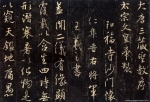 大唐三藏聖教序
太宗文皇帝製
弘福寺沙門懷
仁集晉右將軍
蓋聞二儀有像顯
覆載以含生四時無
形潛寒暑以化物是
以窺天鑑地庸愚皆